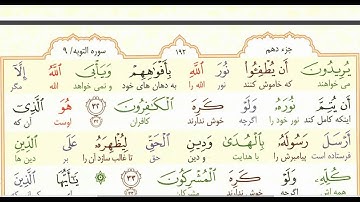 جزء دهم ۱۹۲ سوره التوبه / ۹
يُرِيدُونَ أَن يُطْفِئُوا نُورَ اللَّهِ بِأَفْوَاهِهِمْ وَيَأْبَى اللَّهُ إِلَّا
می خواهند که خاموش کنند نور الله را به دهان های خود و نمی خواهد الله مگر
أَن يُتِمَّ نُورَهُ وَلَوْ كَرِهَ الْكَافِرُونَ ۳۲ هُوَ الَّذِي
اینکه کامل کند نور خود را اگرچه خوش ندارند کافران اوست آن که
أَرْسَلَ رَسُولَهُ بِالْهُدَى وَدِينِ الْحَقِّ لِيُظْهِرَهُ عَلَى الدِّينِ
فرستاده است پیامبرش را با هدایت و دین حق تا غالب سازد آن را بر دین ها
كُلِّهِ وَلَوْ كَرِهَ الْمُشْرِكُونَ ۳۳ يَا أَيُّهَا الَّذِينَ
همه اش اگرچه خوش ندارند مشرکان